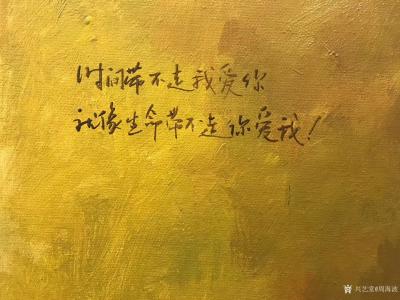 时间带不走我爱你
就像生命带不走你爱我！
兴艺堂@周海波